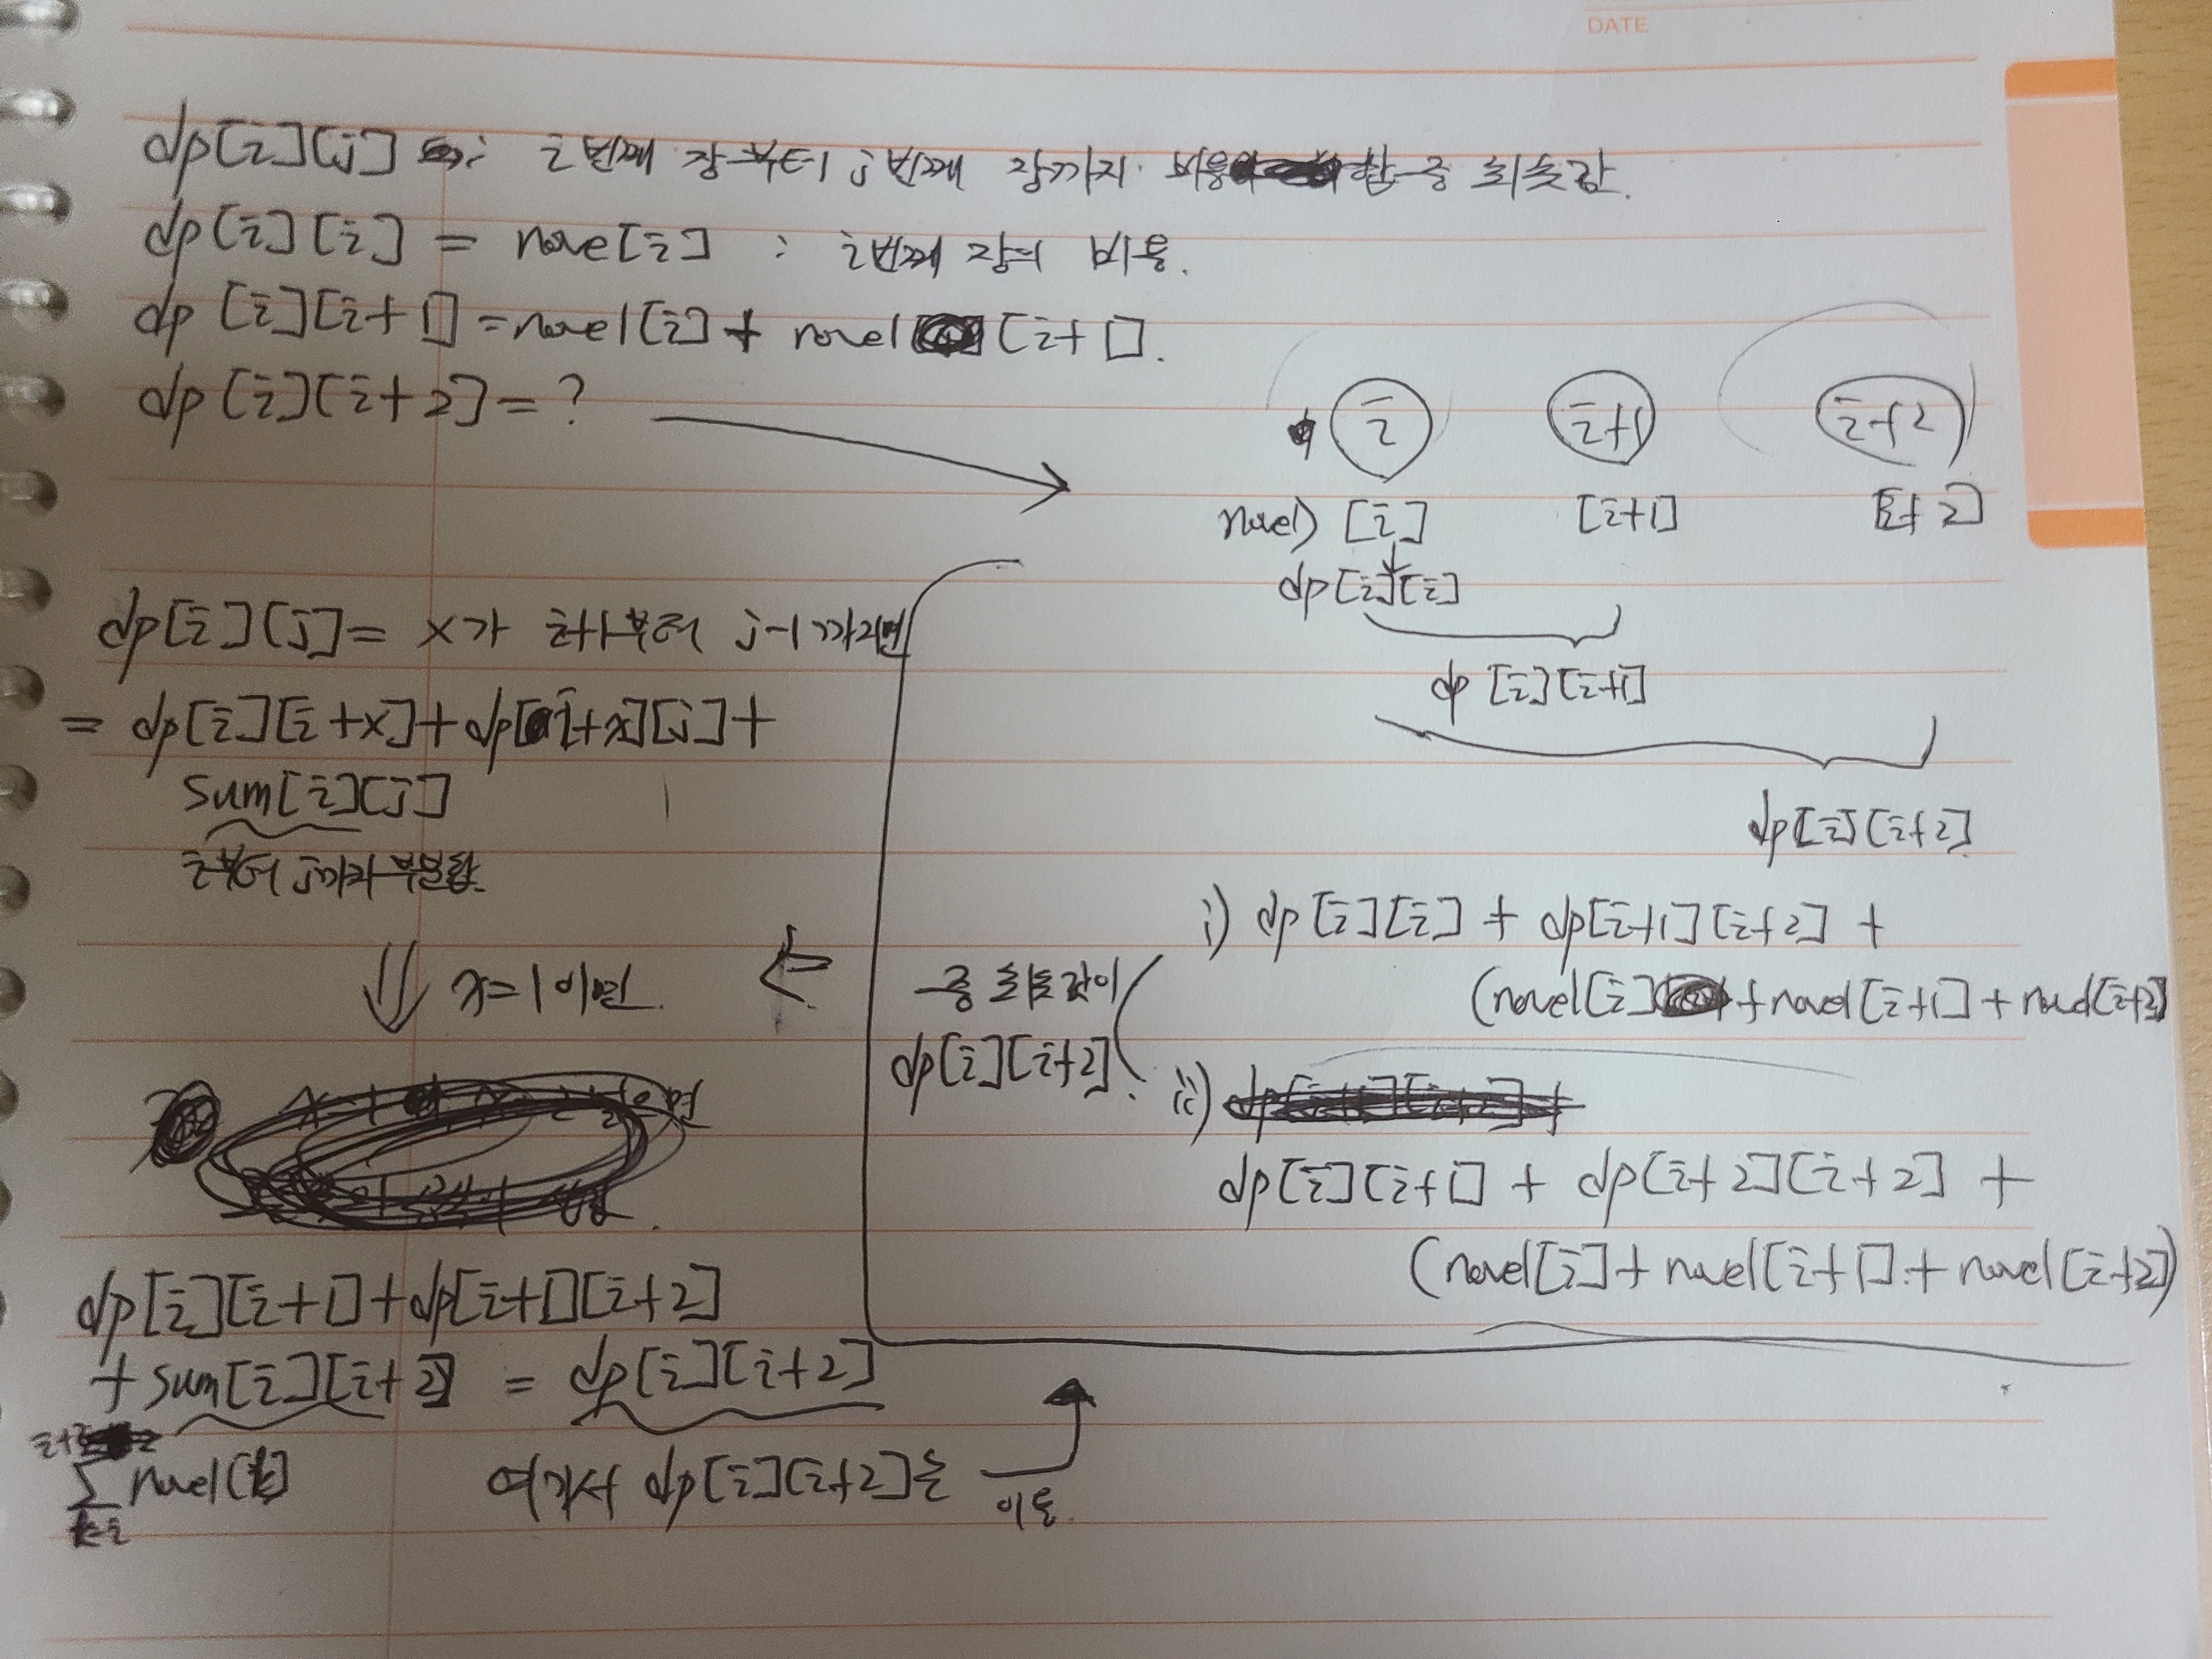 DATE
dp[i][j] : i번째 장부터 j번째 장까지 비용 합 중 최솟값.
dp[i][i] = nove[i] : i번째 장의 비용.
dp[i][i+1] = novel[i] + novel [i+1].
dp[i][i+2] = ?
i i+1 i+2
novel) [i] [i+1] [i+2]
dp[i][i]
dp[i][i+1]
dp[i][i+2]
i) dp[i][i] + dp[i+1][i+2] +
(novel[i] + novel[i+1] + novel[i+2]
ii)
dp[i][i+1] + dp[i+2][i+2] +
(novel[i] + novel[i+1] + novel[i+2])
중 최솟값이
dp[i][i+2].
dp[i][j] = x가 i+1부터 j-1까지면
= dp[i][i+x] + dp[i+x][j] +
sum[i][j]
i부터 j까지 부분합.
x=1이면.
dp[i][i+1] + dp[i+1][i+2]
+ sum[i][i+2] = dp[i][i+2]
∑ novel[k]
k=i
여기서 dp[i][i+2]는
이용.